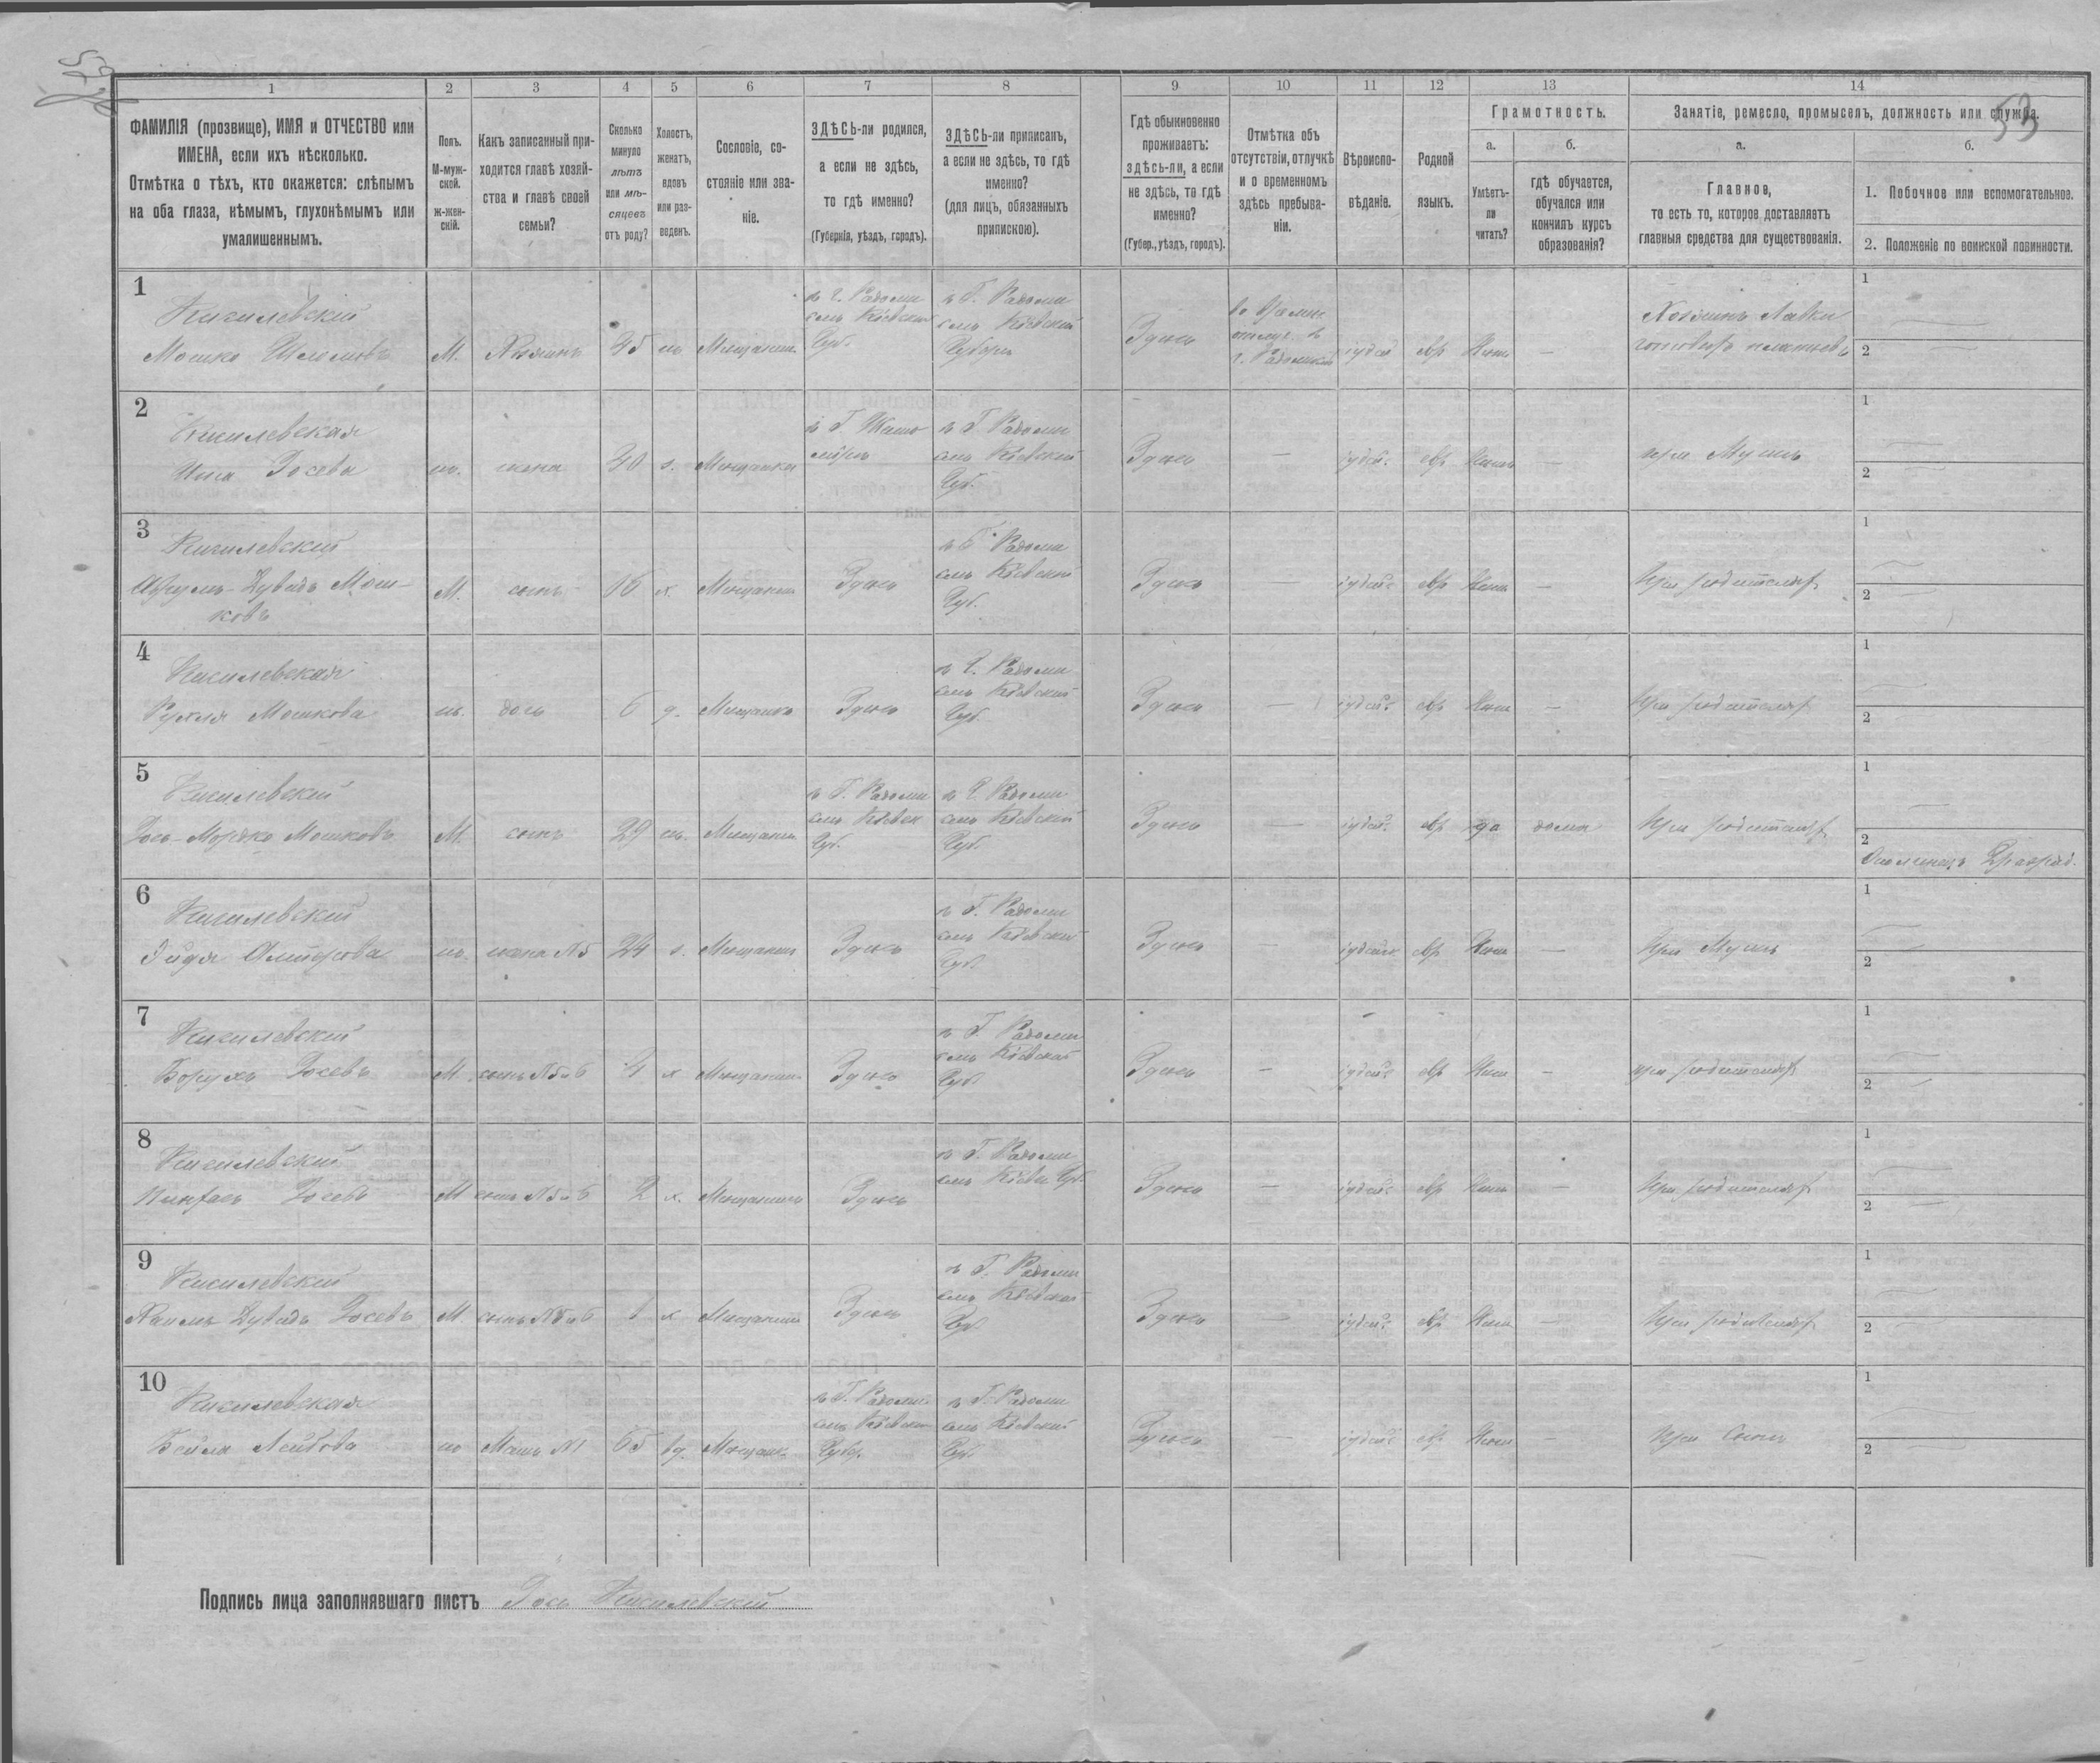 53
1
2
3
4
5
6
7
8
9
10
11
12
13
14
ФАМИЛІЯ (прозвище), ИМЯ и ОТЧЕСТВО или
ИМЕНА, если ихъ нѣсколько.
Отмѣтка о тѣхъ, кто окажется: слѣпымъ
на оба глаза, нѣмымъ, глухонѣмымъ или
умалишеннымъ.
Полъ.
М-муж-
ской.
ж-жен-
скій.
Какъ записанный при-
ходится главѣ хозяй-
ства и главѣ своей
семьи?
Сколько
минуло
лѣтъ
или мѣ-
сяцевъ
отъ роду?
Холостъ,
женатъ,
вдовъ
или раз-
веденъ.
Сословіе, со-
стояніе или зва-
ніе.
ЗДѢСЬ-ли родился,
а если не здѣсь,
то гдѣ именно?
(Губернія, уѣздъ, городъ).
ЗДѢСЬ-ли приписанъ,
а если не здѣсь, то гдѣ
именно?
(для лицъ, обязанныхъ
припискою).
Гдѣ обыкновенно
проживаетъ:
здѣсь-ли, а если
не здѣсь, то гдѣ
именно?
(Губер., уѣздъ, городъ).
Отмѣтка объ
отсутствіи, отлучкѣ
и о временномъ
здѣсь пребыва-
ніи.
Вѣроиспо-
вѣданіе.
Родной
языкъ.
Грамотность.
а.
Умѣетъ-
ли
читать?
б.
гдѣ обучается,
обучался или
кончилъ курсъ
образованія?
Занятіе, ремесло, промыселъ, должность или служба.
а.
Главное,
то есть то, которое доставляетъ
главныя средства для существованія.
б.
1. Побочное или вспомогательное.
2. Положеніе по воинской повинности.
1
Кисилевский
Мошко Шлемовъ М. Хозяинъ 45 ж. Мещанинъ
в г. Радомы
слѣ Кіевской
Губ.
в Г. Радомы
слѣ Кіевской
Губерн
Здесь
іудей евр Нетъ —
Хозяинъ Лавки
1
2
2
Кисилевская
Иосева ж. жена 40 з. Мещанка
в Г. Радомы
слѣ Кіевской
Губ.
Здесь — іудей. евр Нетъ —
при Муже
1
2
3
Кисилевский
Дувидъ Мош-
ковъ М. сынъ х. Мещанинъ Здесь
в Г. Радомы
слѣ Кіевской
Губ.
Здесь — іудейс евр Нетъ —
При родителях
1
2
4
Кисилевская
Рухля Мошкова ж. дочь 6 д. Мещанка Здесь
в Г. Радомы
слѣ Кіевской
Губ.
Здесь — іудейс евр Нетъ —
При родителях
1
2
5
Кисилевский
Иось-Мордко Мошковъ М. сынъ 29 ж. Мещанин
в Г. Радомы
слѣ Кіевск
Губ.
в Г. Радомы
слѣ Кіевской
Губ.
Здесь — іудейс евр да дома
При родителях
1
2
6
Кисилевский
ж. жена №5 24 з. Мещанинъ Здесь
в Г. Радомы
слѣ Кіевской
Губ.
Здесь — іудейск евр Нетъ —
При Муже
1
2
7
Кисилевский
Борухъ Иосевъ М. сынъ №5и6 4 х Мещанинъ Здесь
в Г. Радомы
слѣ Кіевской
Губ.
Здесь — іудейс евр Нетъ —
при родителях
1
2
8
Кисилевский
Пинхасъ Иосевъ М сынъ №5и6 2 х. Мещанинъ Здесь
в Г. Радомы
слѣ Кіевск Губ.
Здесь — іудейс евр Нетъ —
При родителях
1
2
9
Кисилевский
Хаимъ Дувидъ Иосевъ М. сынъ №5и6 1 х Мещанинъ Здесь
в Г. Радомы
слѣ Кіевской
Губ.
Здесь — іудейс. евр Нетъ —
При родителях
1
2
10
Кисилевская
Бейла Лейбова ж Мать №1 65 вд. Мещанк.
в Г. Радомы
слѣ Кіевской
Губер.
в Г. Радомы
слѣ Кіевской
Губ.
Здесь — іудейс евр Нетъ —
При Сыне
1
2
Подпись лица заполнявшаго листъ Иось Кисилевский